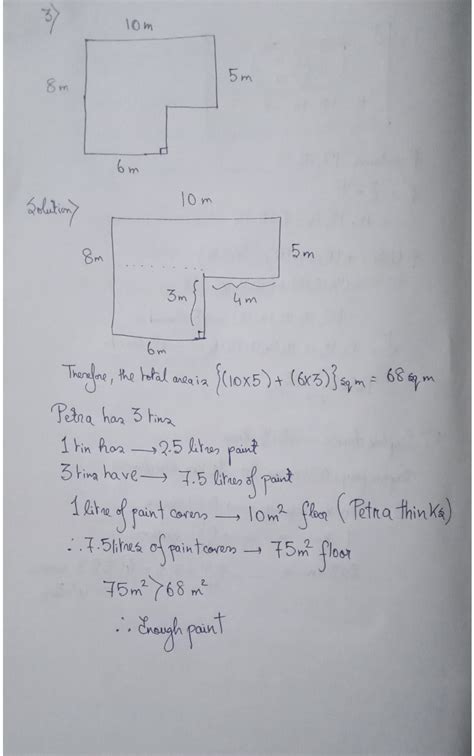 3)
10 m
8 m
5 m
6 m
Solution)
10 m
8 m
5 m
3 m
4 m
6 m
Therefore, the total area is {(10×5) + (6×3)} sq m = 68 sq m
Petra has 3 tins
1 tin has → 2.5 litres paint
3 tins have → 7.5 litres of paint
1 litre of paint covers → 10 m² floor (Petra thinks)
∴ 7.5 litres of paint covers → 75 m² floor
75 m² > 68 m²
∴ Enough paint